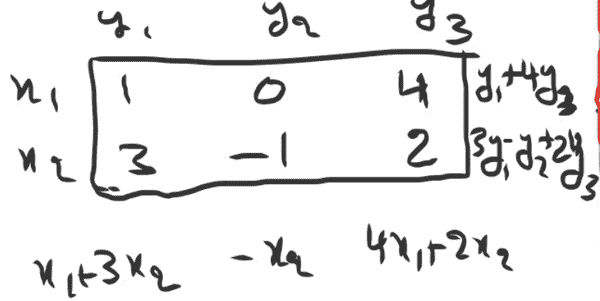 y₁ y₂ y₃
x₁ 1 0 4 y₁+4y₃
x₂ 3 -1 2 3y₁-y₂+2y₃
x₁+3x₂ -x₂ 4x₁+2x₂